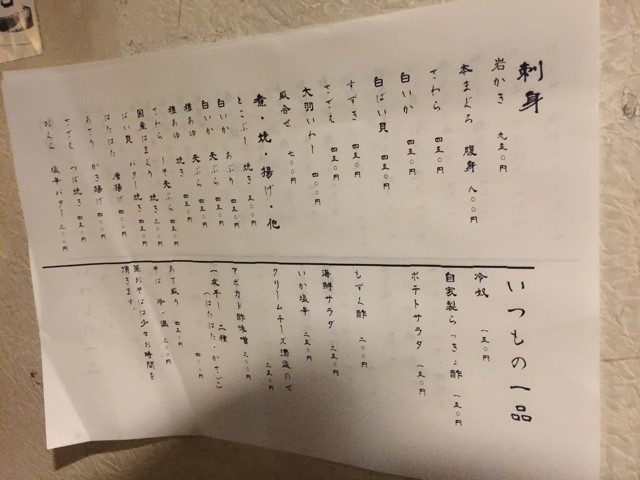 刺身
岩かき 九五〇円
本まぐろ 腹身 八〇〇円
さわら 四五〇円
白いか 四五〇円
白ばい貝 四五〇円
すずき 四五〇円
さざえ 四五〇円
大羽いわし 四〇〇円
盛合せ 七〇〇円
煮・焼・揚げ・他
とこぶし 焼き 五〇〇円
白いか あぶり 四五〇円
白いか 天ぷら 四五〇円
稚あゆ 天ぷら 四五〇円
稚あゆ 焼き 四五〇円
さわら しそ天ぷら 四五〇円
国産はまぐり 焼き
ばい貝 バター焼き 四五〇円
はたはた 唐揚げ 四〇〇円
あさり かき揚げ 四〇〇円
さざえ つぼ焼き 四五〇円
塩辛バター 三〇〇円
いつもの一品
冷奴 一五〇円
自家製らっきょ酢 一五〇円
ポテトサラダ 一五〇円
もずく酢 二〇〇円
海鮮サラダ 三五〇円
いか塩辛 二五〇円
クリームチーズ酒盗のせ 二五〇円
アボカド酢味噌 三〇〇円
一夜干し 二種
(はたはた・かさご) 四〇〇円
あて盛り 四五〇円
そば 冷・温 五〇〇円
温おそばは少々お時間を
頂きます。